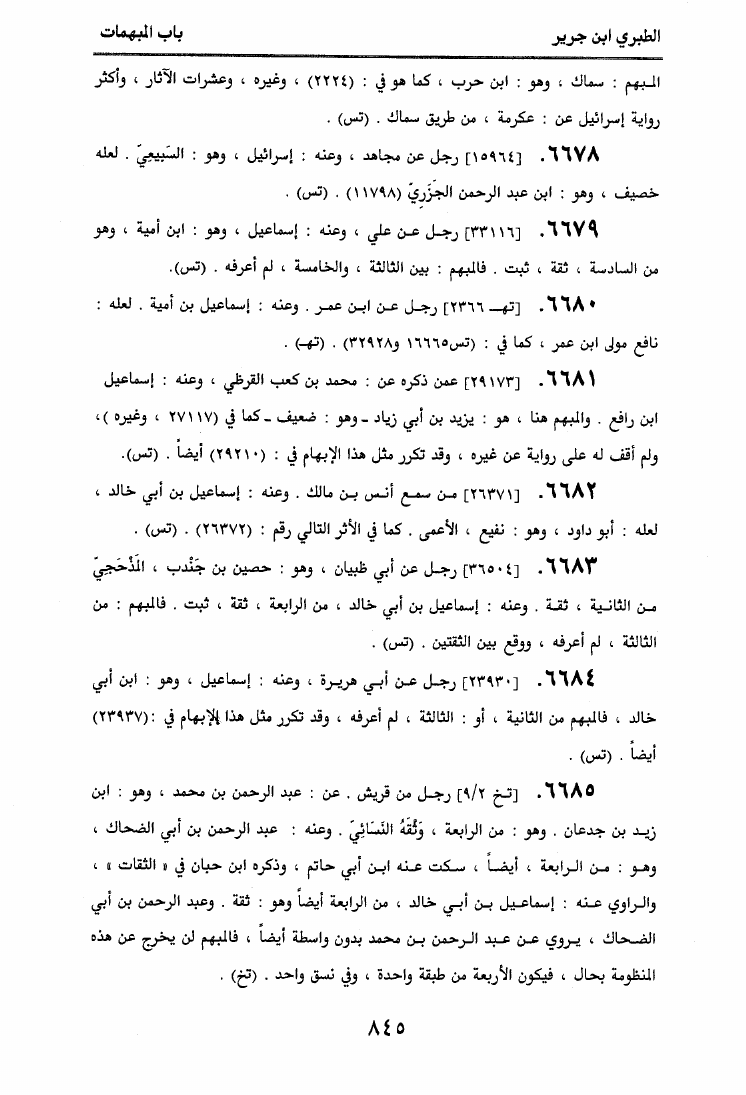 الطبري ابن جرير
باب المبهمات
المبهم : سماك ، وهو : ابن حرب ، كما هو في : (٢٢٢٤) ، وغيره ، وعشرات الآثار ، وأكثر
رواية إسرائيل عن : عكرمة ، من طريق سماك . (تس) .
٦٦٧٨. [١٥٩٦٤] رجل عن مجاهد ، وعنه : إسرائيل ، وهو : السَبيعِيّ . لعله
خصيف ، وهو : ابن عبد الرحمن الجَزَرِيّ (١١٧٩٨) . (تس) .
٦٦٧٩. [٣٣١١٦] رجـل عـن علي ، وعنه : إسماعيل ، وهو : ابن أمية ، وهو
من السادسة ، ثقة ، ثبت . فالمبهم : بين الثالثة ، والخامسة ، لم أعرفه . (تس).
٦٦٨٠. [تهـ ٢٣٦٦] رجـل عـن ابـن عمـر . وعنه : إسماعيل بن أمية . لعله :
نافع مولى ابن عمر ، كما في : (تس١٦٦٦٥ و٣٢٩٢٨) . (تهـ) .
٦٦٨١. [٢٩١٧٣] عمن ذكره عن : محمد بن كعب القرظي ، وعنه : إسماعيل
ابن رافع . والمبهم هنا ، هو : يزيد بن أبي زياد ـ وهو : ضعيف ـ كما في (٢٧١١٧ ، وغيره )،
ولم أقف له على رواية عن غيره ، وقد تكرر مثل هذا الإبهام في : (٢٩٢١٠) أيضاً . (تس).
٦٦٨٢. [٢٦٣٧١] مـن سمـع أنـس بـن مالك . وعنه : إسماعيل بن أبي خالد ،
لعله : أبو داود ، وهو : نفيع ، الأعمى . كما في الأثر التالي رقم : (٢٦٣٧٢) . (تس) .
٦٦٨٣. [٣٦٥٠٤] رجـل عن أبي ظبيان ، وهو : حصين بن جَنْدب ، المَذْحَجِيّ
مـن الثانـية ، ثقـة . وعنه : إسماعيل بن أبي خالد ، من الرابعة ، ثقة ، ثبت . فالمبهم : من
الثالثة ، لم أعرفه ، ووقع بين الثقتين . (تس) .
٦٦٨٤. [٢٣٩٣٠] رجـل عـن أبـي هريـرة ، وعنه : إسماعيل ، وهو : ابن أبي
خالد ، فالمبهم من الثانية ، أو : الثالثة ، لم أعرفه ، وقد تكرر مثل هذا الإبهام في :(٢٣٩٣٧)
أيضاً . (تس) .
٦٦٨٥. [تـخ ٩/٢] رجـل من قريش . عن : عبد الرحمن بن محمد ، وهو : ابن
زيـد بن جدعان . وهو : من الرابعة ، وَثَقَهُ النَسَائِيّ . وعنه : عبد الرحمن بن أبي الضحاك ،
وهـو : مـن الـرابعة ، أيضـاً ، سـكت عـنه ابـن أبي حاتم ، وذكره ابن حبان في « الثقات » ،
والـراوي عـنه : إسمـاعـيل بـن أبـي خالد ، من الرابعة أيضاً وهو : ثقة . وعبد الرحمن بن أبي
الضـحاك ، يـروي عـن عـبد الـرحمن بـن محمد بدون واسطة أيضاً ، فالمبهم لن يخرج عن هذه
المنظومة بحال ، فيكون الأربعة من طبقة واحدة ، وفي نسق واحد . (تخ) .
٨٤٥